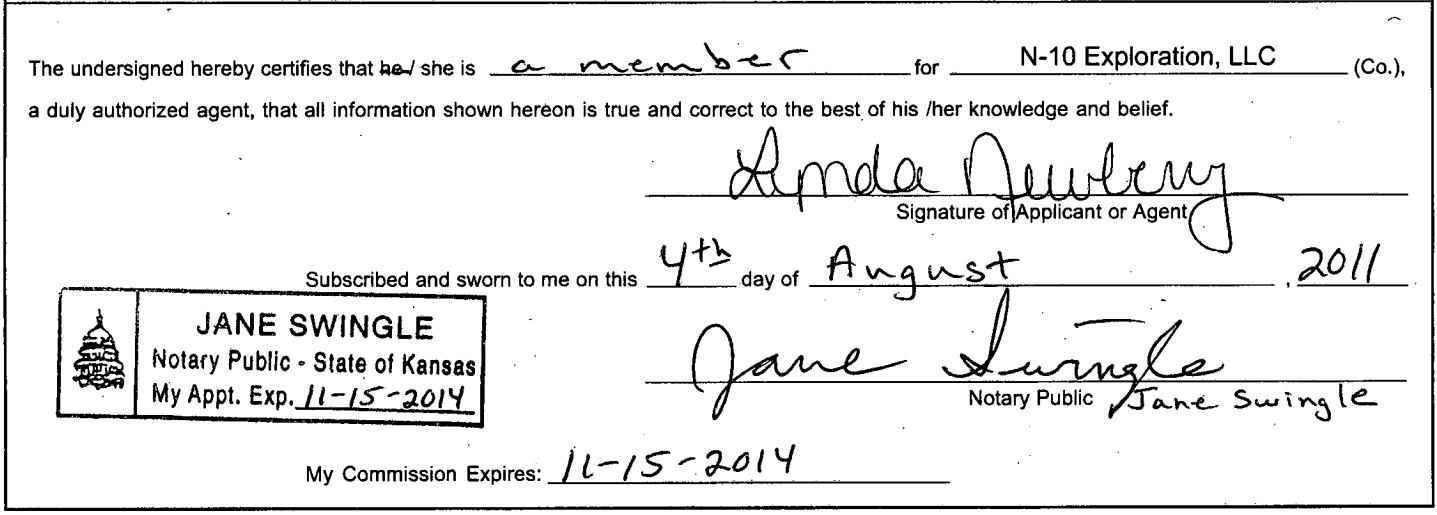 The undersigned hereby certifies that he/ she is a member for N-10 Exploration, LLC (Co.),
a duly authorized agent, that all information shown hereon is true and correct to the best of his /her knowledge and belief.
Lynda Newberry
Signature of Applicant or Agent
Subscribed and sworn to me on this 4th day of August, 2011
JANE SWINGLE
Notary Public - State of Kansas
My Appt. Exp. 11-15-2014
Jane Swingle
Notary Public Jane Swingle
My Commission Expires: 11-15-2014